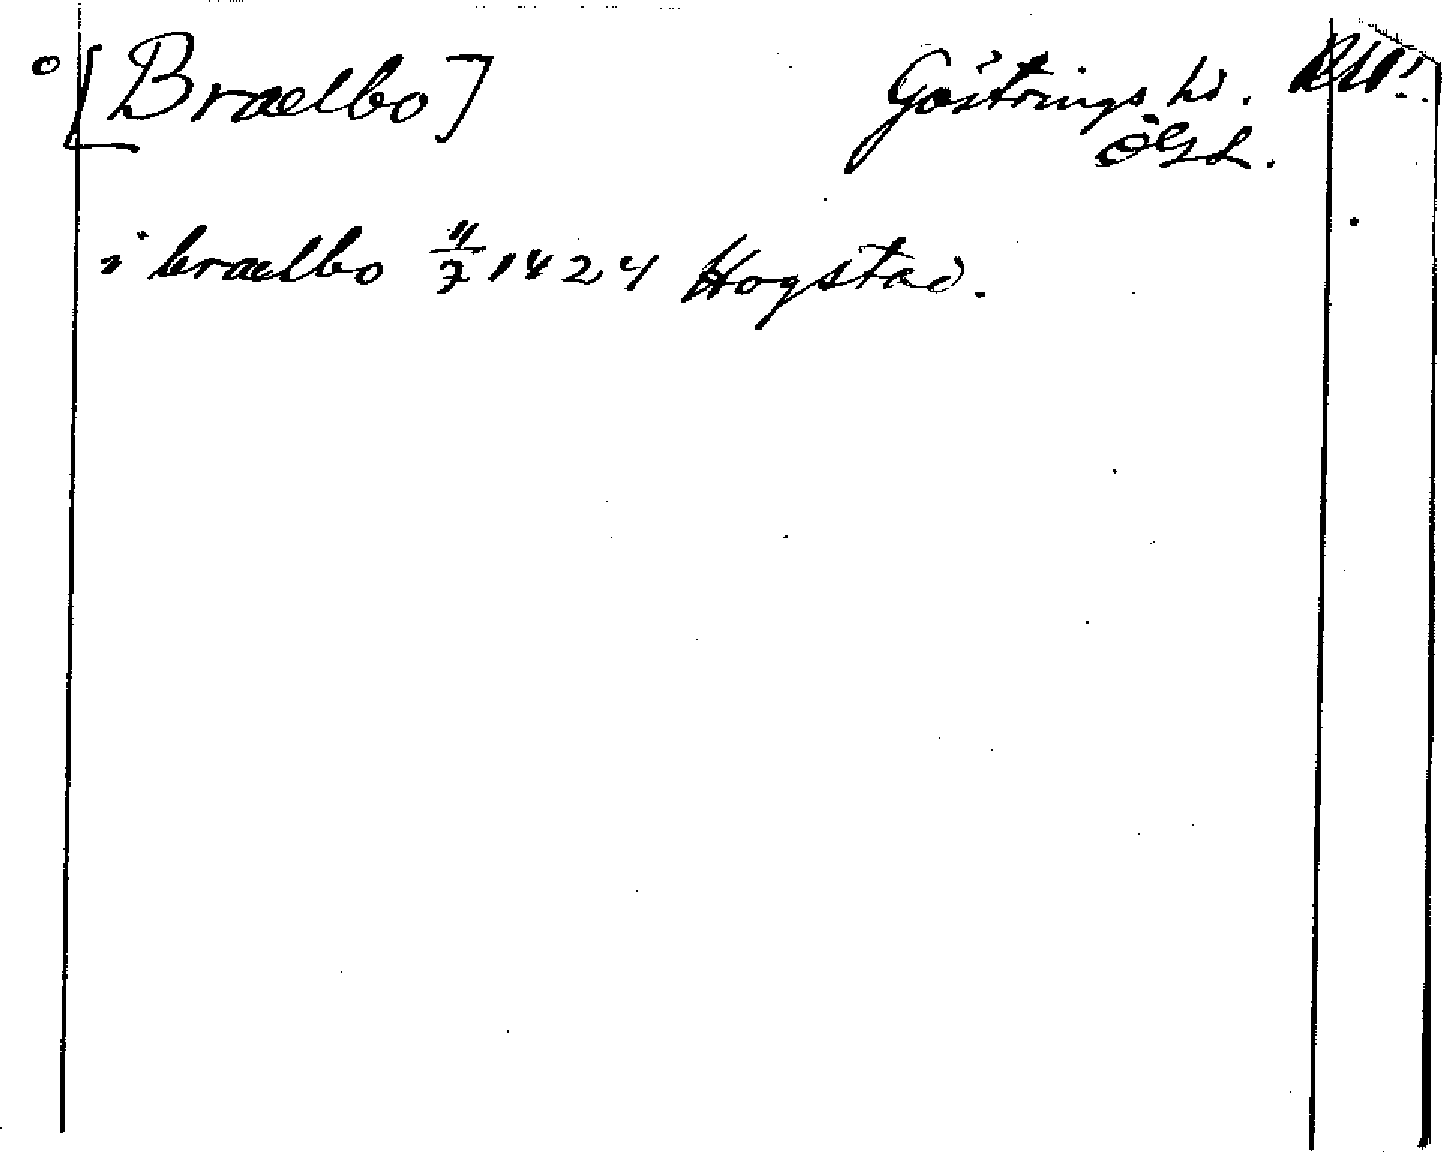 [Braelbo] Göstrings hd.
ÖGL.
i braelbo 11/7 1424 Hogstad.